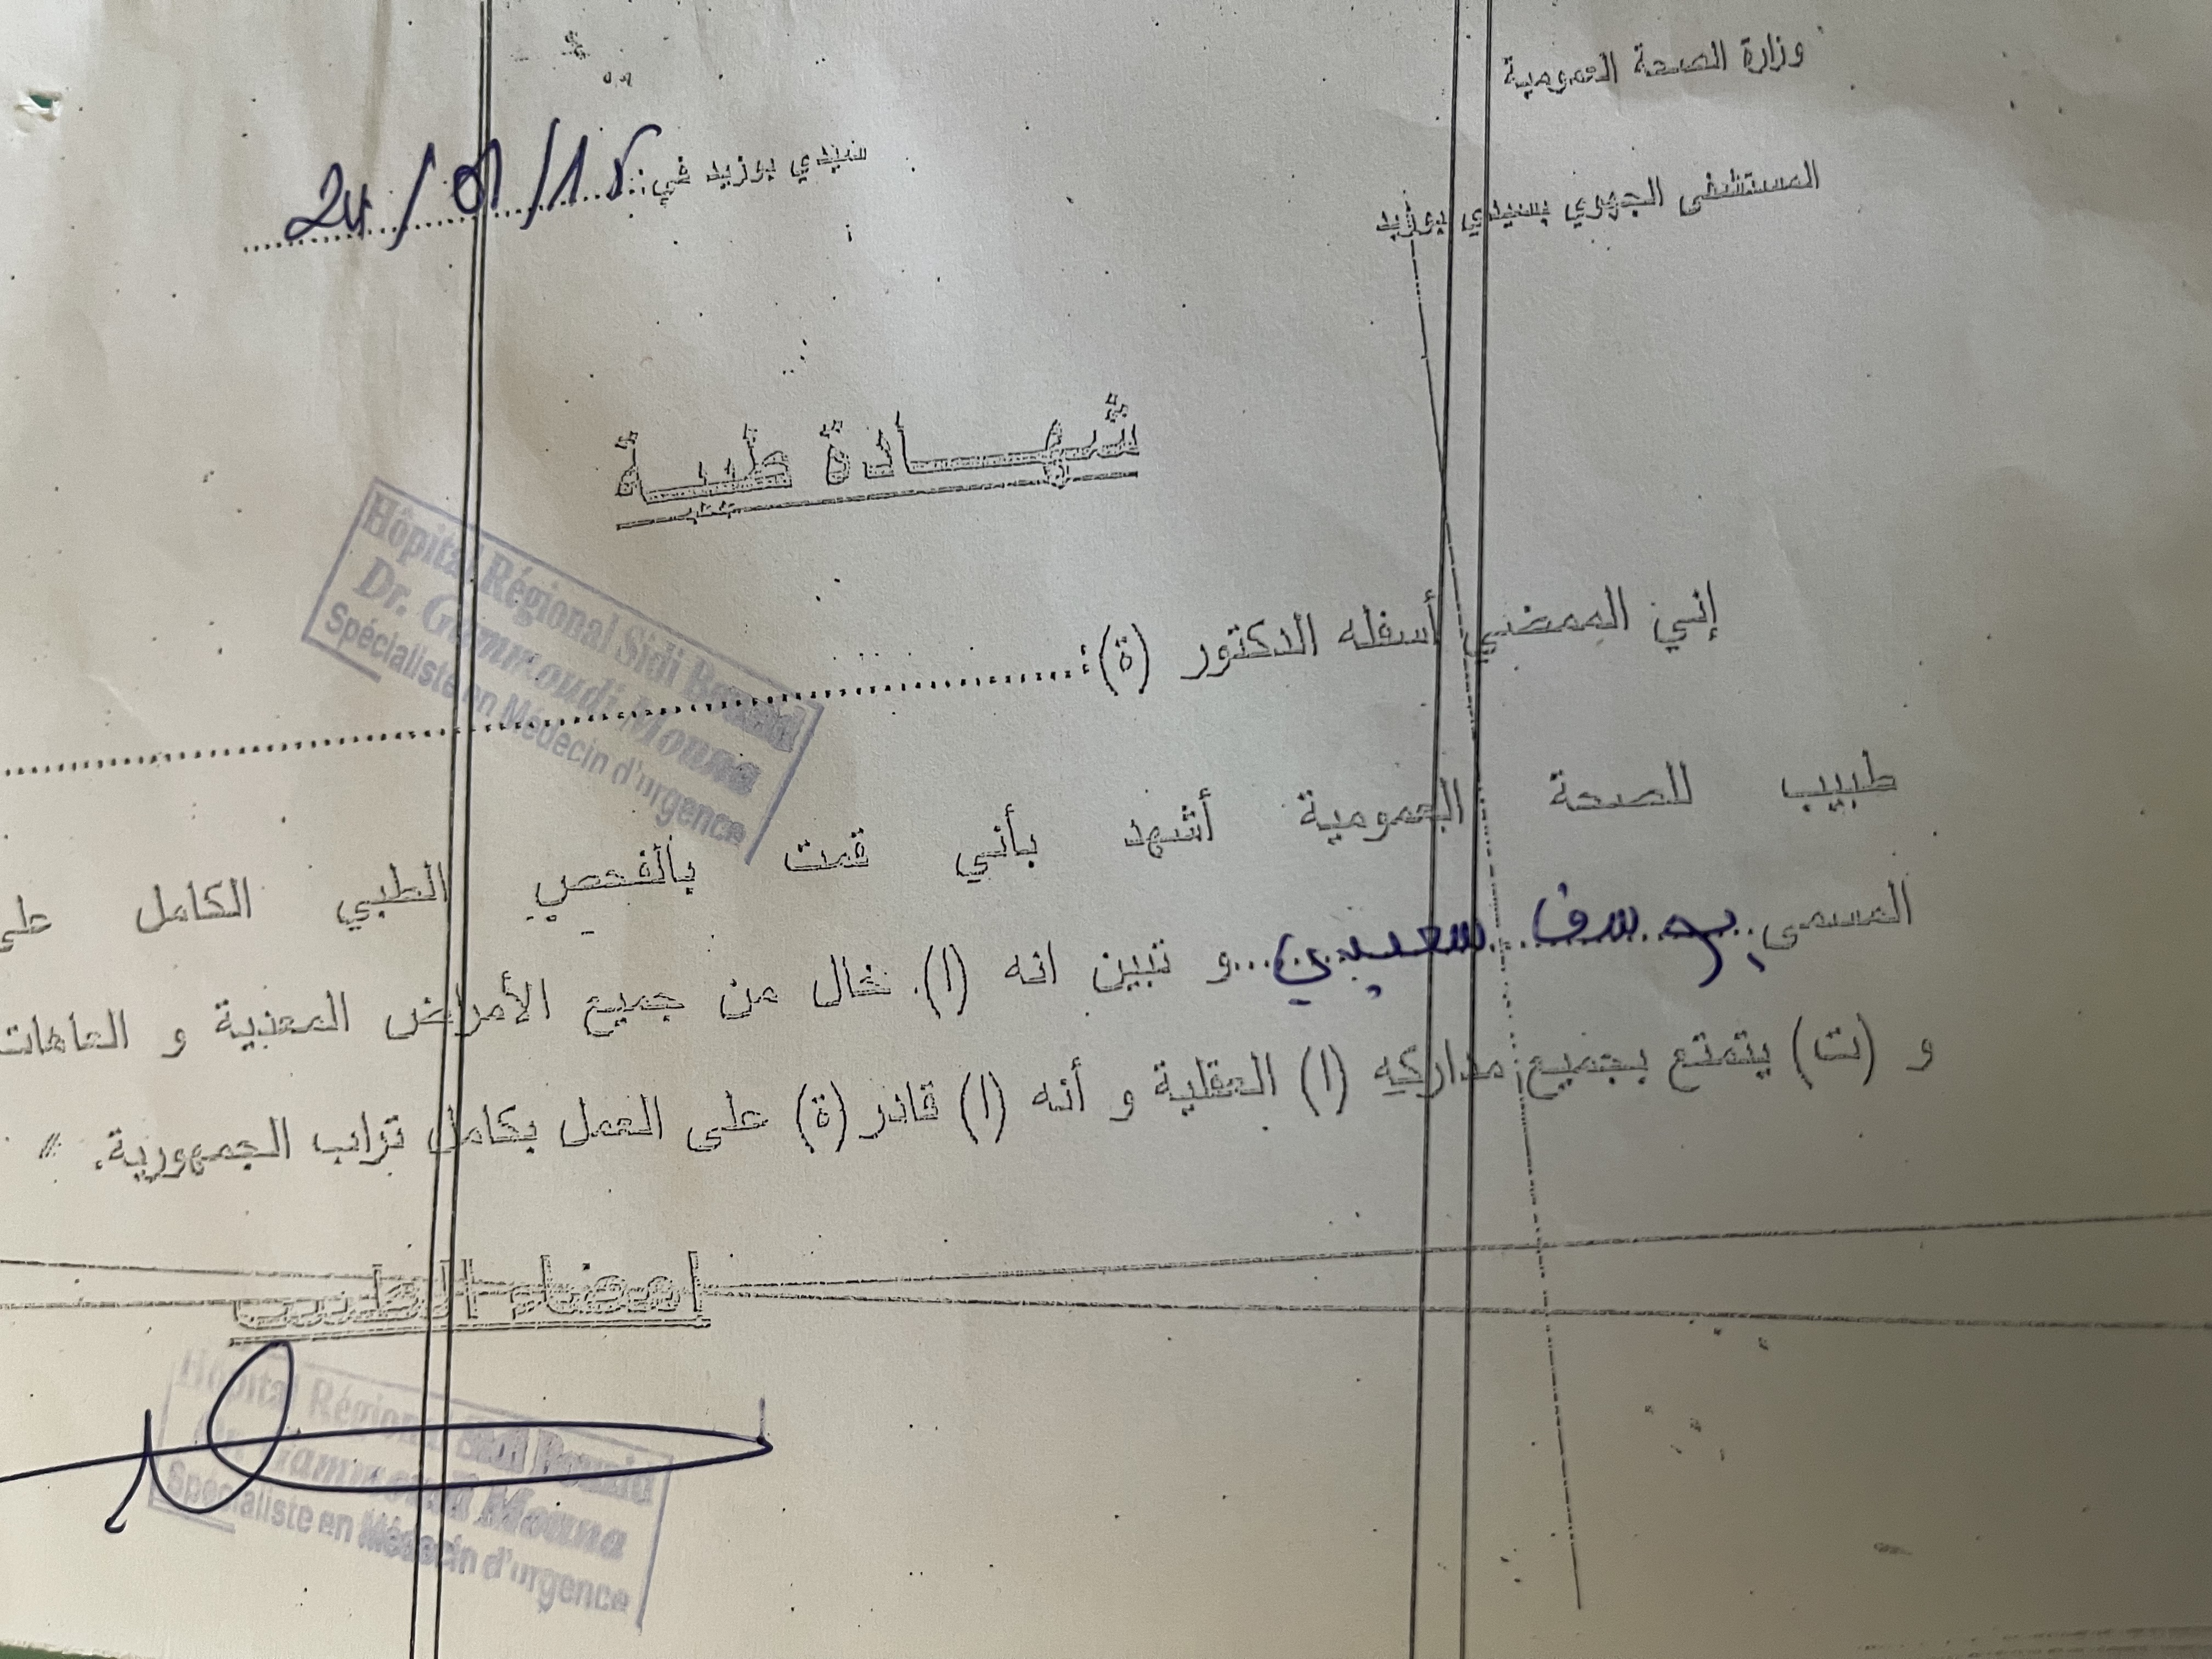 وزارة الصحة العمومية
المستشفى الجهوي بسيدي بوزيد
سيدي بوزيد في:
شهـــادة طبيـة
Hôpital Régional Sidi Bouzid
Dr. Gammoudi Mouna
Spécialiste en Médecin d'urgence
إني الممضي أسفله الدكتور (ة):
طبيب للصحة العمومية أشهد بأني قمت بالفحص الطبي الكامل على
المسمى يوسف سعيدي و تبين انه (ا). خال من جميع الأمراض المعدية و العاهات
و (ت) يتمتع بجميع مداركه (ا) العقلية و أنه (ا) قادر (ة) على العمل بكامل تراب الجمهورية. //
امضاء الطبيب
Hôpital Régional Sidi Bouzid
Dr. Gammoudi Mouna
Spécialiste en Médecin d'urgence